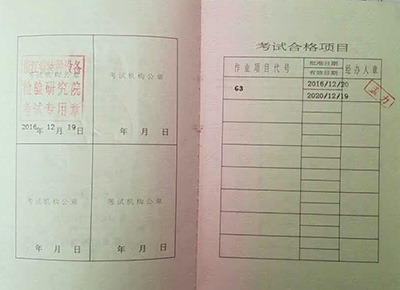 考试机构公章
检验研究院
考试专用章
2016年 12月 19日
考试机构公章
年 月 日
考试机构公章
年 月 日
考试机构公章
年 月 日
考试合格项目
作业项目代号
批准日期
有效日期
经办人章
G3
2016/12/20
2020/12/19